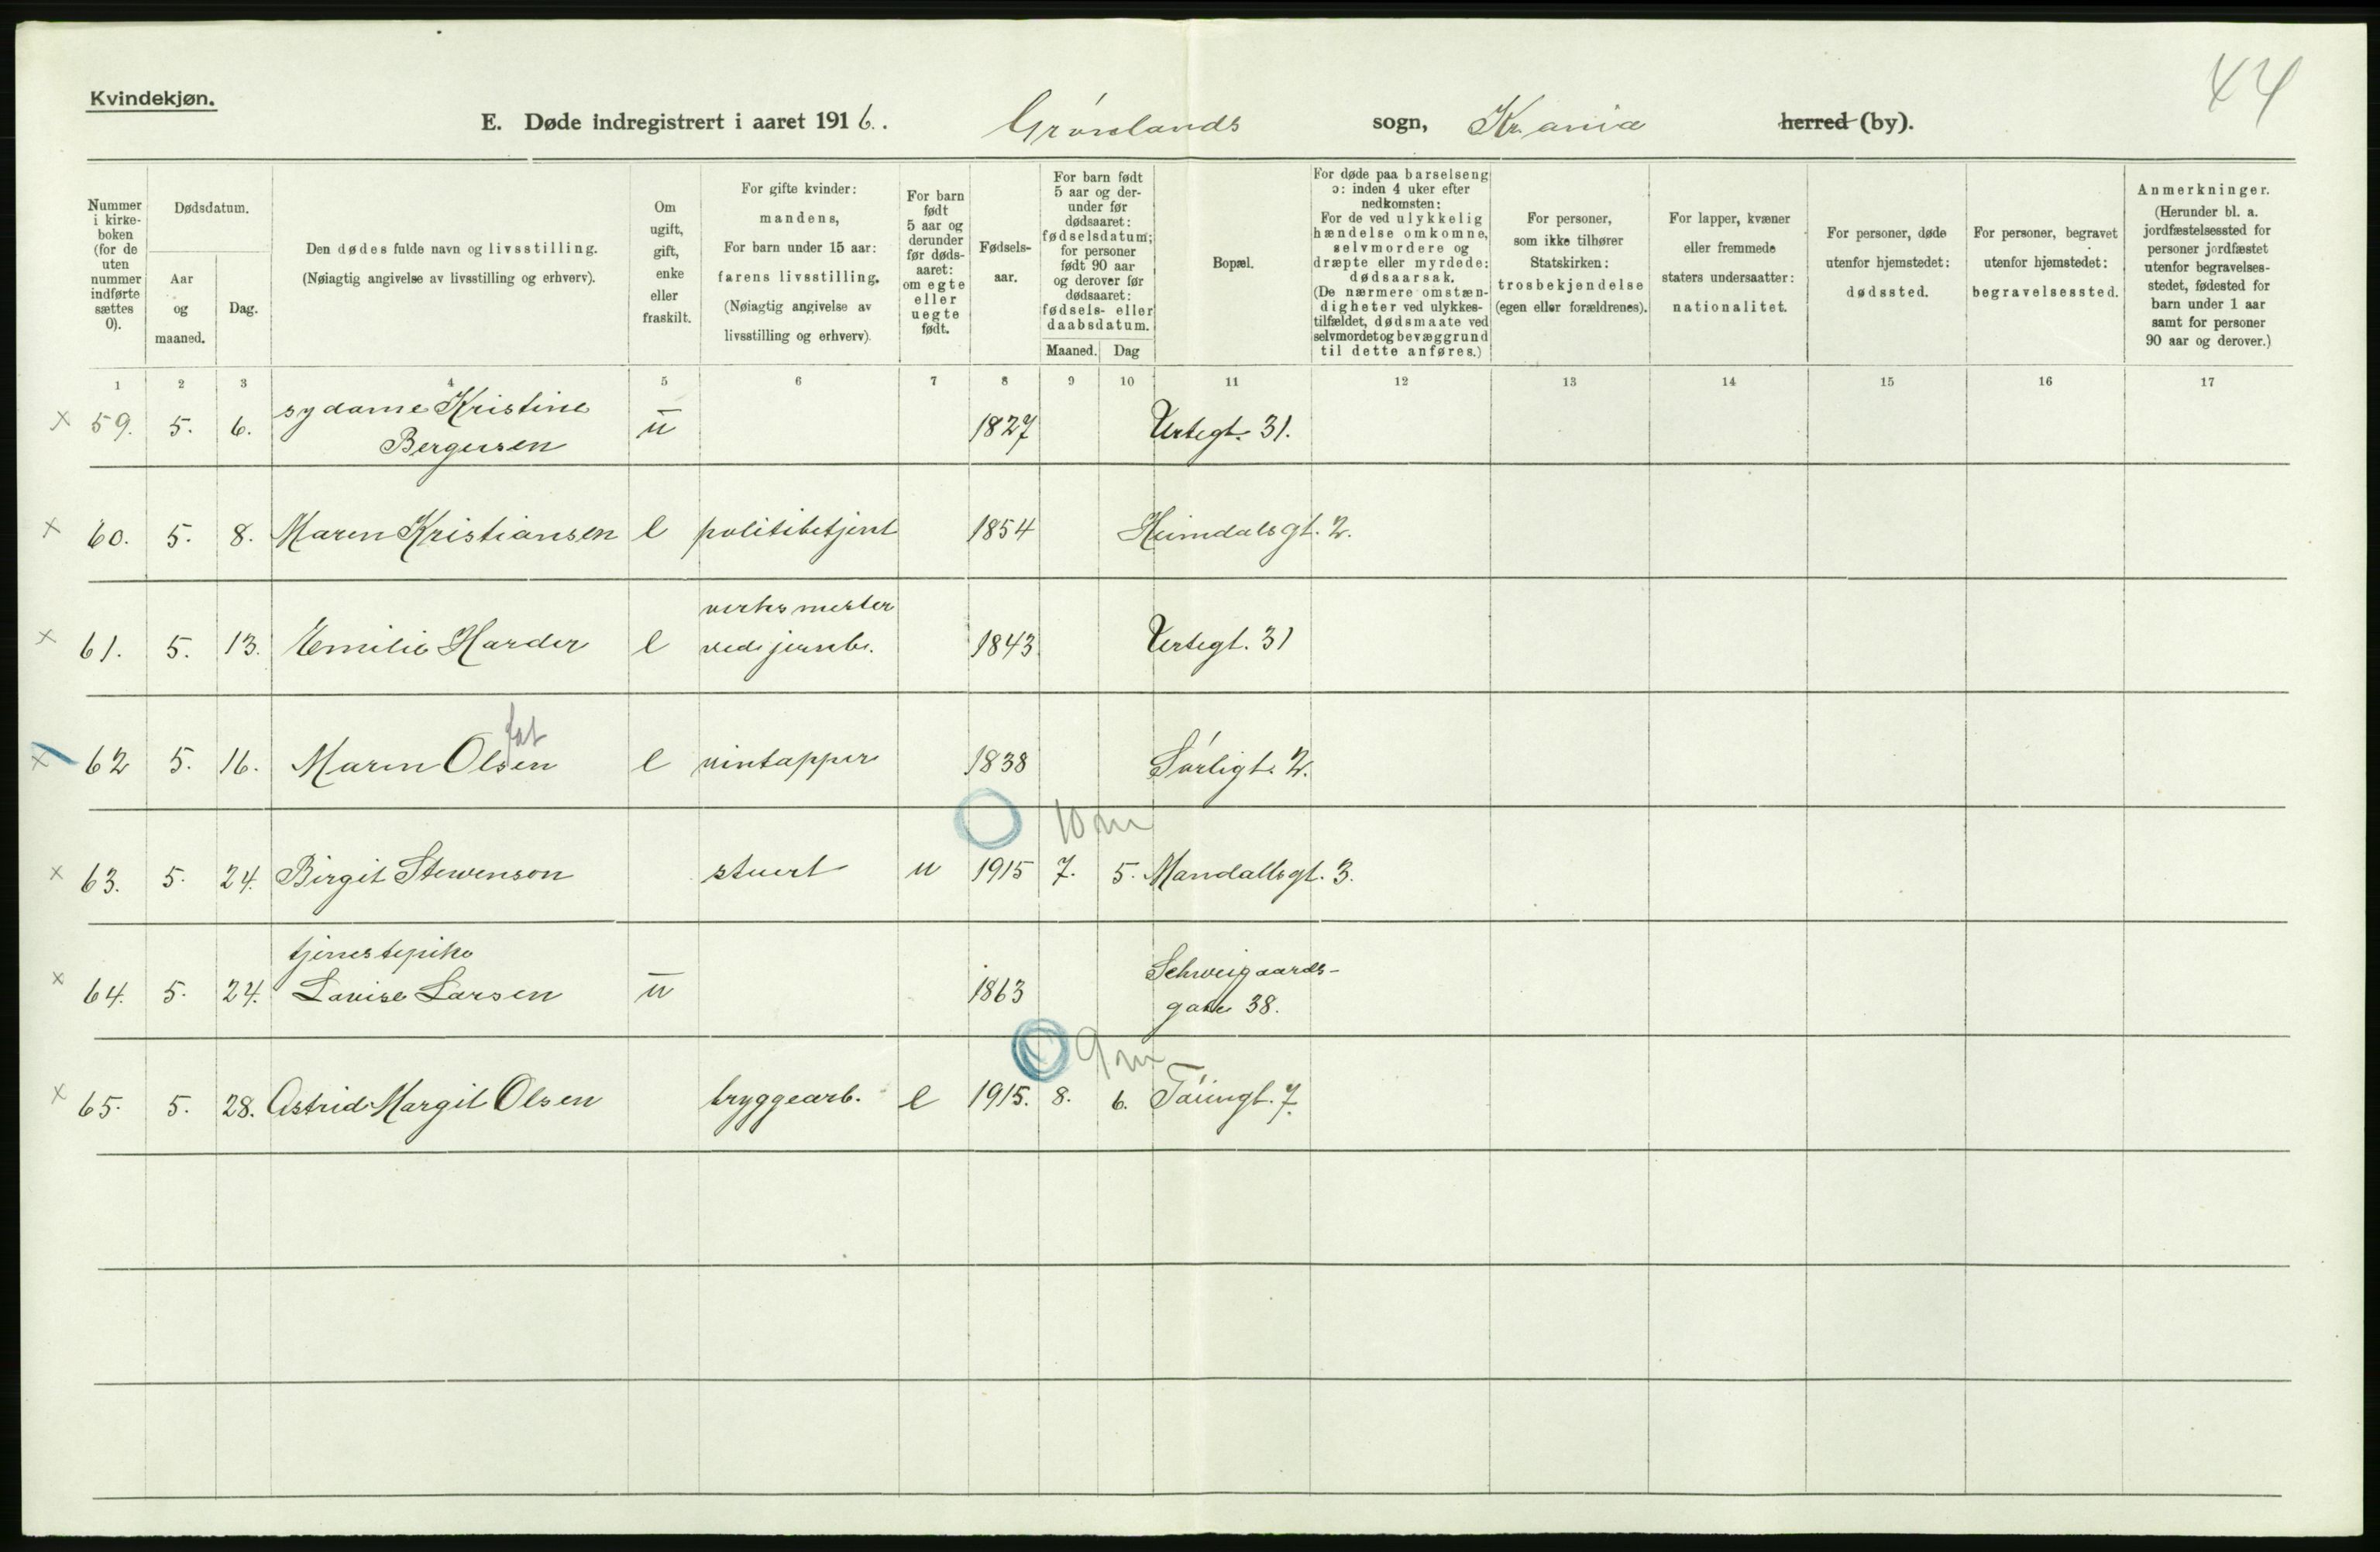 44
Kvindekjøn.
E. Døde indregistrert i aaret 1916. Grønlands sogn, Kr.ania herred (by).
Nummer i kirkeboken (for de uten nummer indførte sættes 0).
Dødsdatum.
Aar og maaned.
Dag.
Den dødes fulde navn og livsstilling.
(Nøiagtig angivelse av livsstilling og erhverv).
Om ugift, gift, enke eller fraskilt.
For gifte kvinder: mandens,
For barn under 15 aar: farens livsstilling.
(Nøiagtig angivelse av livsstilling og erhverv).
For barn født 5 aar og derunder før dødsaaret: om egte eller uegte født.
Fødselsaar.
For barn født 5 aar og derunder før dødsaaret: fødselsdatum; for personer født 90 aar og derover før dødsaaret: fødsels- eller daabsdatum.
Maaned. Dag
Bopæl.
For døde paa barselseng ɔ: inden 4 uker efter nedkomsten:
For de ved ulykkelig hændelse omkomne, selvmordere og dræpte eller myrdede: dødsaarsak.
(De nærmere omstændigheter ved ulykkestilfældet, dødsmaate ved selvmordet og bevæggrund til dette anføres.)
For personer, som ikke tilhører Statskirken: trosbekjendelse (egen eller forældrenes).
For lapper, kvæner eller fremmede staters undersaatter: nationalitet.
For personer, døde utenfor hjemstedet: dødssted.
For personer, begravet utenfor hjemstedet: begravelsessted.
Anmerkninger.
(Herunder bl. a. jordfæstelsessted for personer jordfæstet utenfor begravelsesstedet, fødested for barn under 1 aar samt for personer 90 aar og derover.)
1 2 3 4 5 6 7 8 9 10 11 12 13 14 15 16 17
x 59. 5. 6. sydame Kristine Bergersen u 1827 Urtegt. 31.
x 60. 5. 8. Maren Kristiansen e politibetjent 1854 Heimdalsgt. 2.
x 61. 5. 13. Emilie Harder e verksmester ved jernb. 1843 Urtegt. 31
fat
x 62 5. 16. Maren Olsen e vintapper 1838 Sørligt. 2.
10 m
x 63. 5. 24. Birgit Stewenson stuert u 1915 7. 5. Mandallsgt. 3.
x 64. 5. 24. tjenestepike Lovise Larsen u 1863 Schweigaardsgate 38.
9 m
x 65. 5. 28. Astrid Margit Olsen bryggearb. e 1915. 8. 6. Tøiengt. 7.